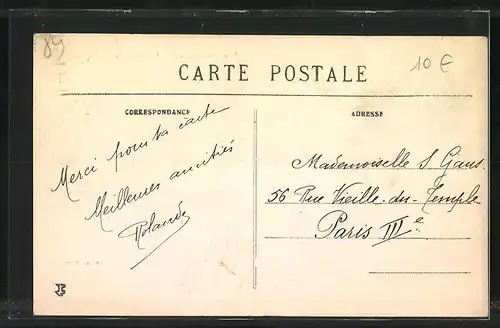 89
10 €
CARTE POSTALE
CORRESPONDANCE
ADRESSE
Merci pour ta carte
Meilleures amitiés
Rolande
Mademoiselle S. Gaus.
56 Rue Vieille-du-Temple
Paris IIIe.